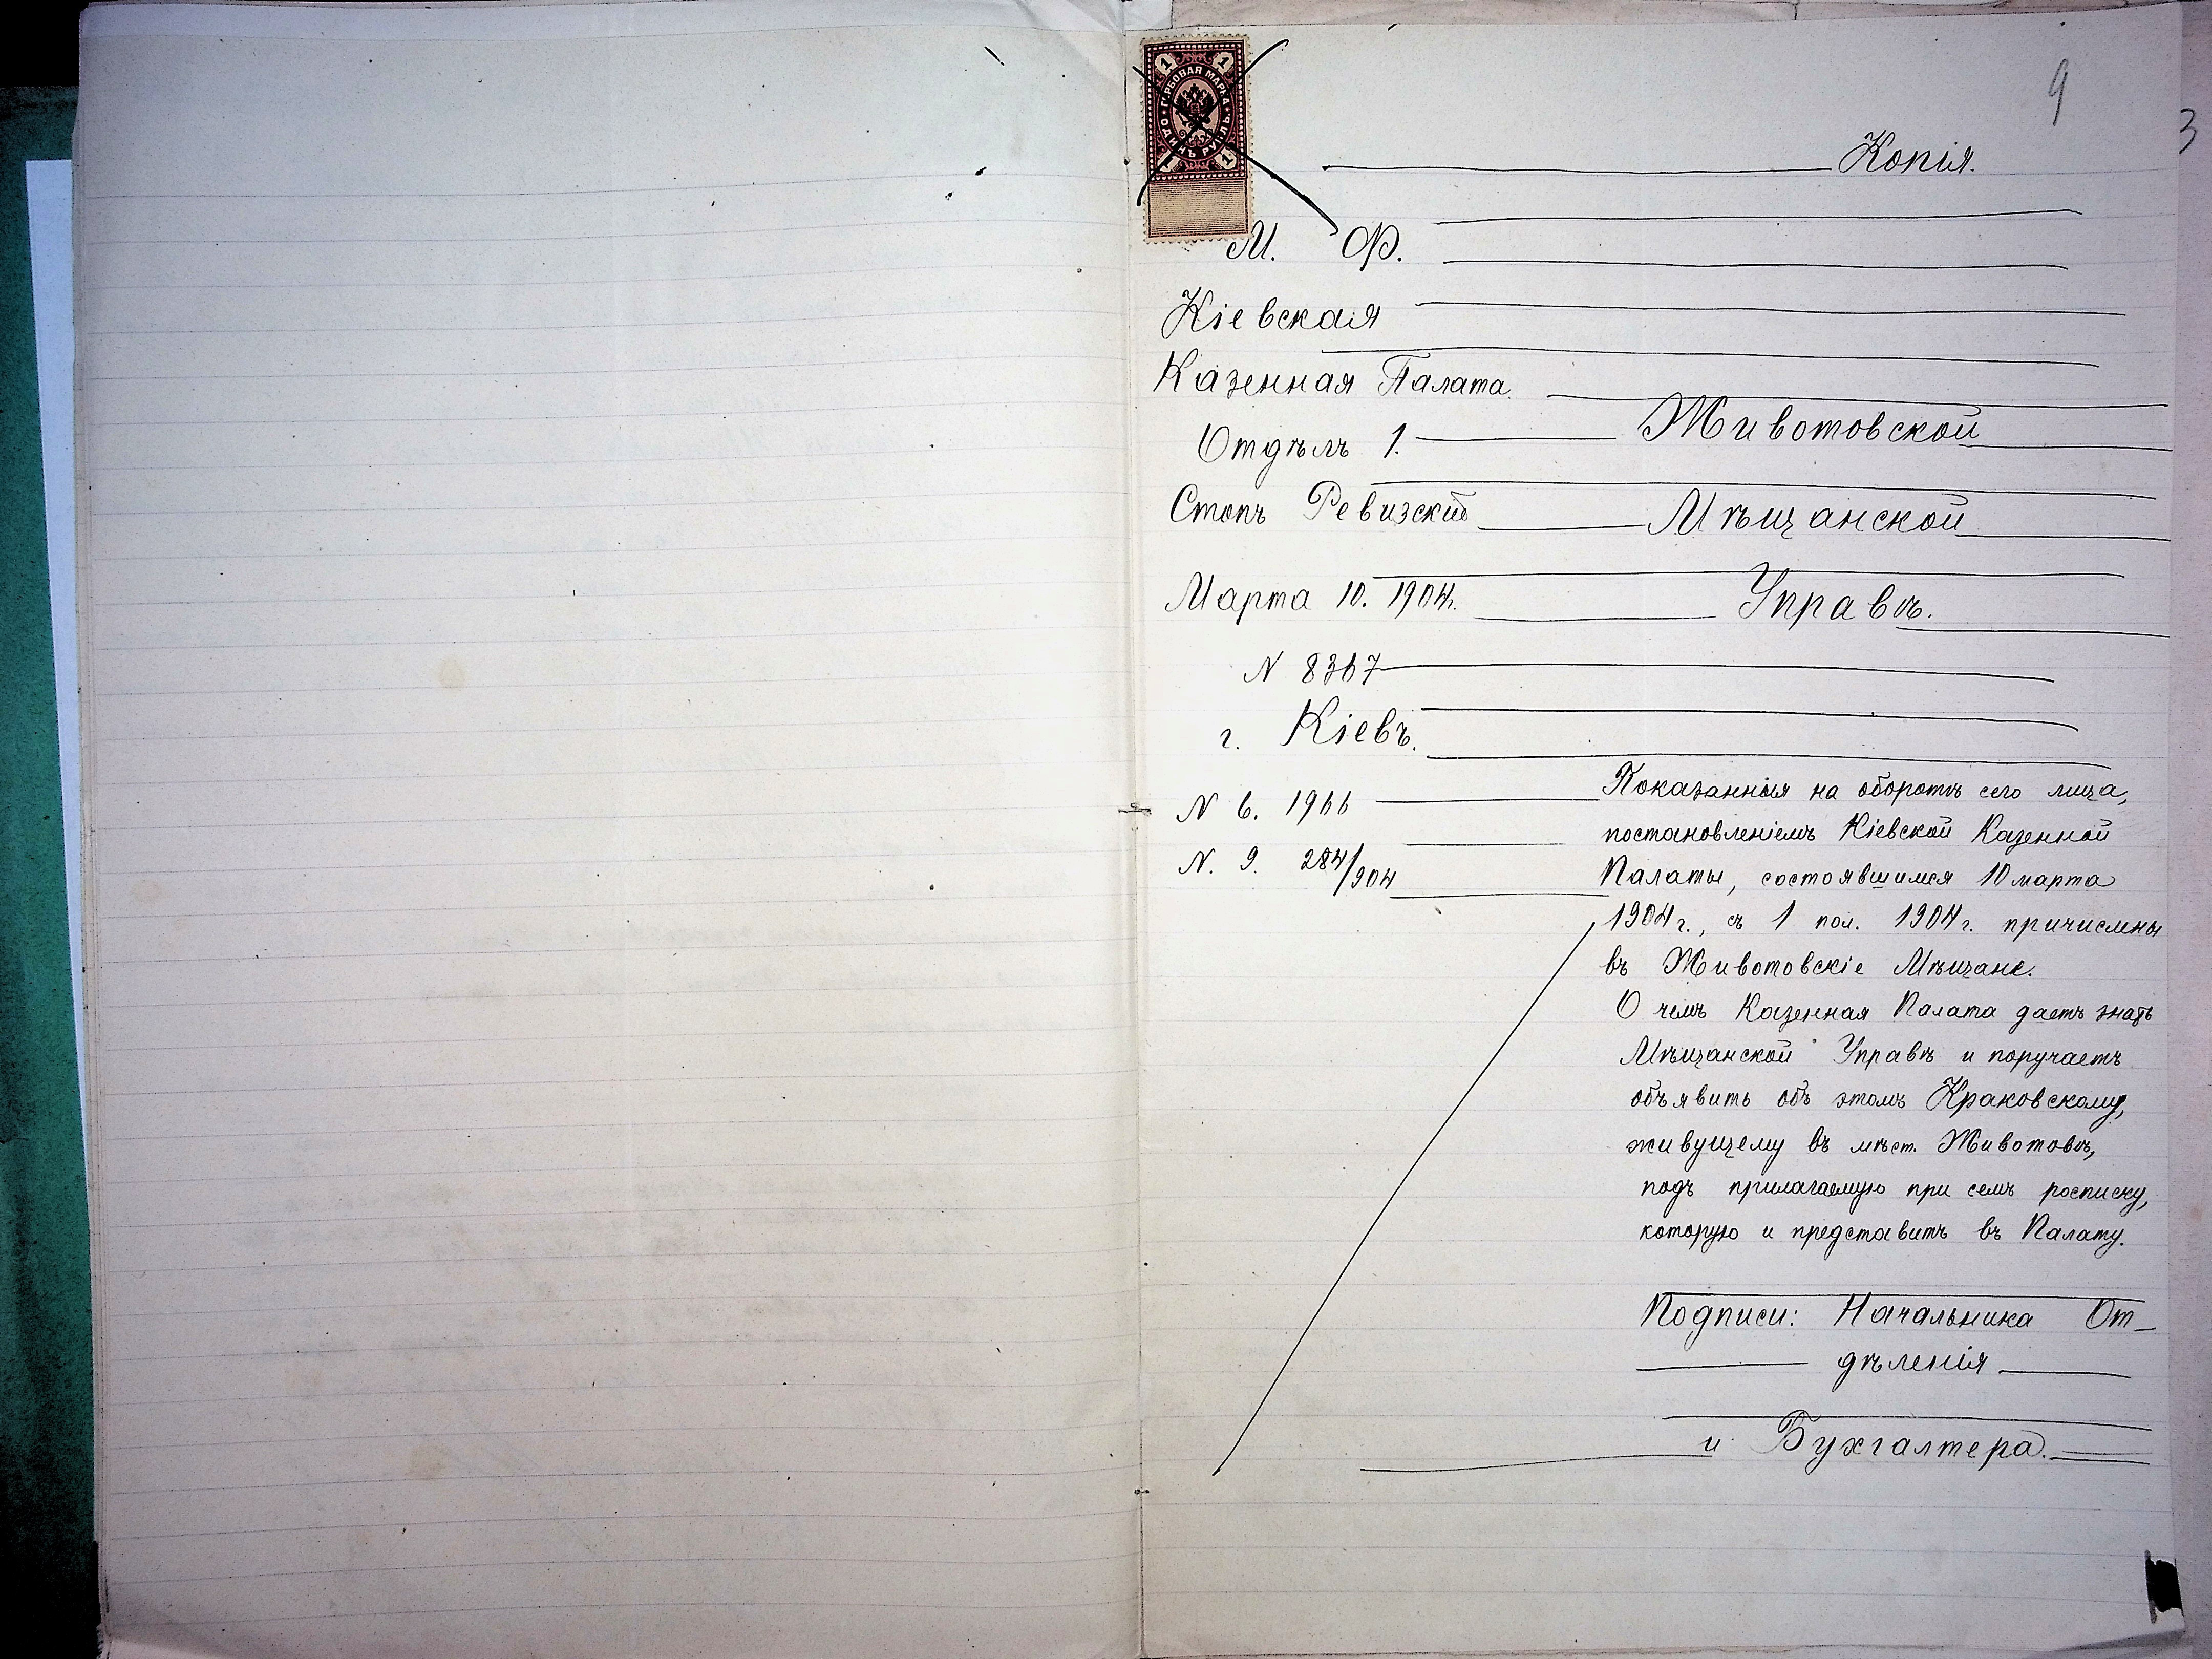 9
3
1 1
ГЕРБОВАЯ МАРКА
ОДИНЪ РУБЛЬ
1 1
Копія.
М. Ф.
Кіевская
Казенная Палата.
Отдѣлъ 1.
Столъ Ревизскій
Марта 10. 1904г.
N 8367
г. Кіевъ.
N 6. 1966
N. 9. 284/904
Животовской
Мѣщанской
Управѣ.
Показанныя на оборотѣ сего лица,
постановленіемъ Кіевской Казенной
Палаты, состоявшимся 10 марта
1904 г., съ 1 пол. 1904 г. причислены
въ Животовскіе Мѣщане.
О чемъ Казенная Палата даетъ знать
Мѣщанской Управѣ и поручаетъ
объявить объ этомъ Краковскому,
живущему въ мѣст. Животовѣ,
подъ прилагаемую при семъ росписку,
которую и представить въ Палату.
Подписи: Начальника От-
дѣленія
и Бухгалтера.